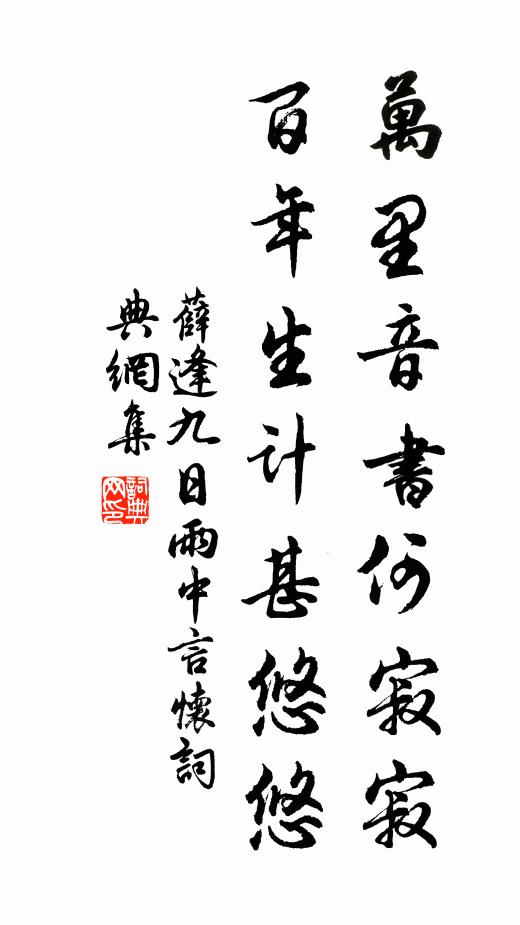 萬里音書何寂寂
百年生計甚悠悠
薛逢九日雨中言懷詞
典網集
詞典網印